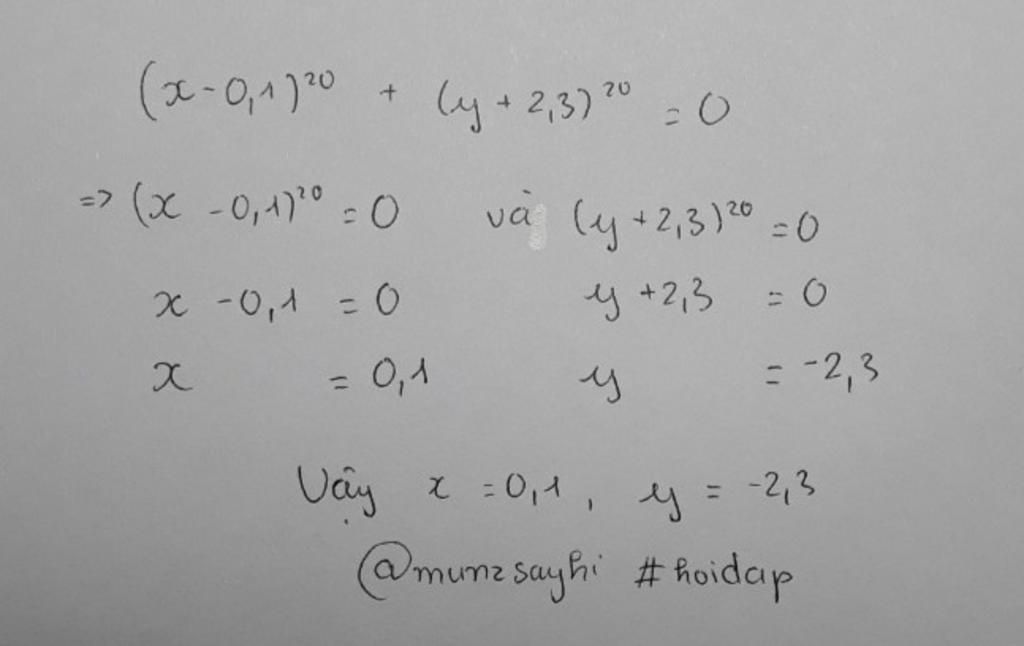 (x - 0,1)²⁰ + (y + 2,3)²⁰ = 0
=> (x - 0,1)²⁰ = 0 và (y + 2,3)²⁰ = 0
x - 0,1 = 0 y + 2,3 = 0
x = 0,1 y = -2,3
Vậy x = 0,1, y = -2,3
@munzsayhi #hoidap